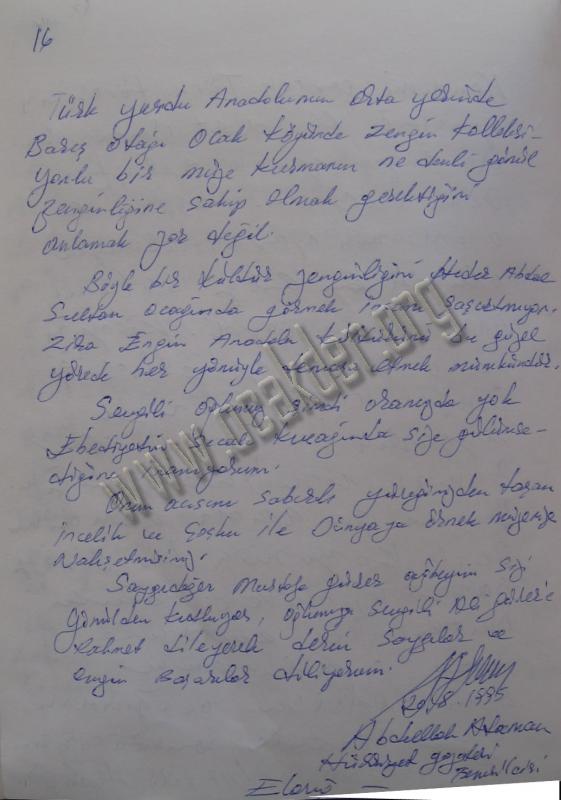 16
Türk yurdu Anadolunun orta yerinde
Barış otağı Ocak Köyünde zengin kolleksi-
yonlu bir müze kurmanın ne denli gönül
zenginliğine sahip olmak gerektiğini
anlamak zor değil.
Böyle bir kültür zenginliğini Hıdır Abdal
Sultan ocağında görmek insanı şaşırtmıyor.
Zira Engin Anadolu kültürünü bu güzel
yörede her yönüyle temaşa etmek mümkündür.
Sevgili oğlunuz şimdi aranızda yok
Ebediyetin sıcak kucağında size gülümse-
diğine inanıyorum.
Onun acısını sabırla yüreğinizden taşan
incelik ve coşku ile Dünyaya örnek müzenize
nakşetmişsiniz.
Saygıdeğer Mustafa Gürer ağabeyim sizi
gönülden kutluyor, oğlunuz sevgili Ali Gürer'e
rahmet dileyerek derin saygılar ve
engin başarılar diliyorum.
1995
Abdullah Ataman
Hürriyet gazetesi
Temsilcisi
Elazığ
www.ocakder.org